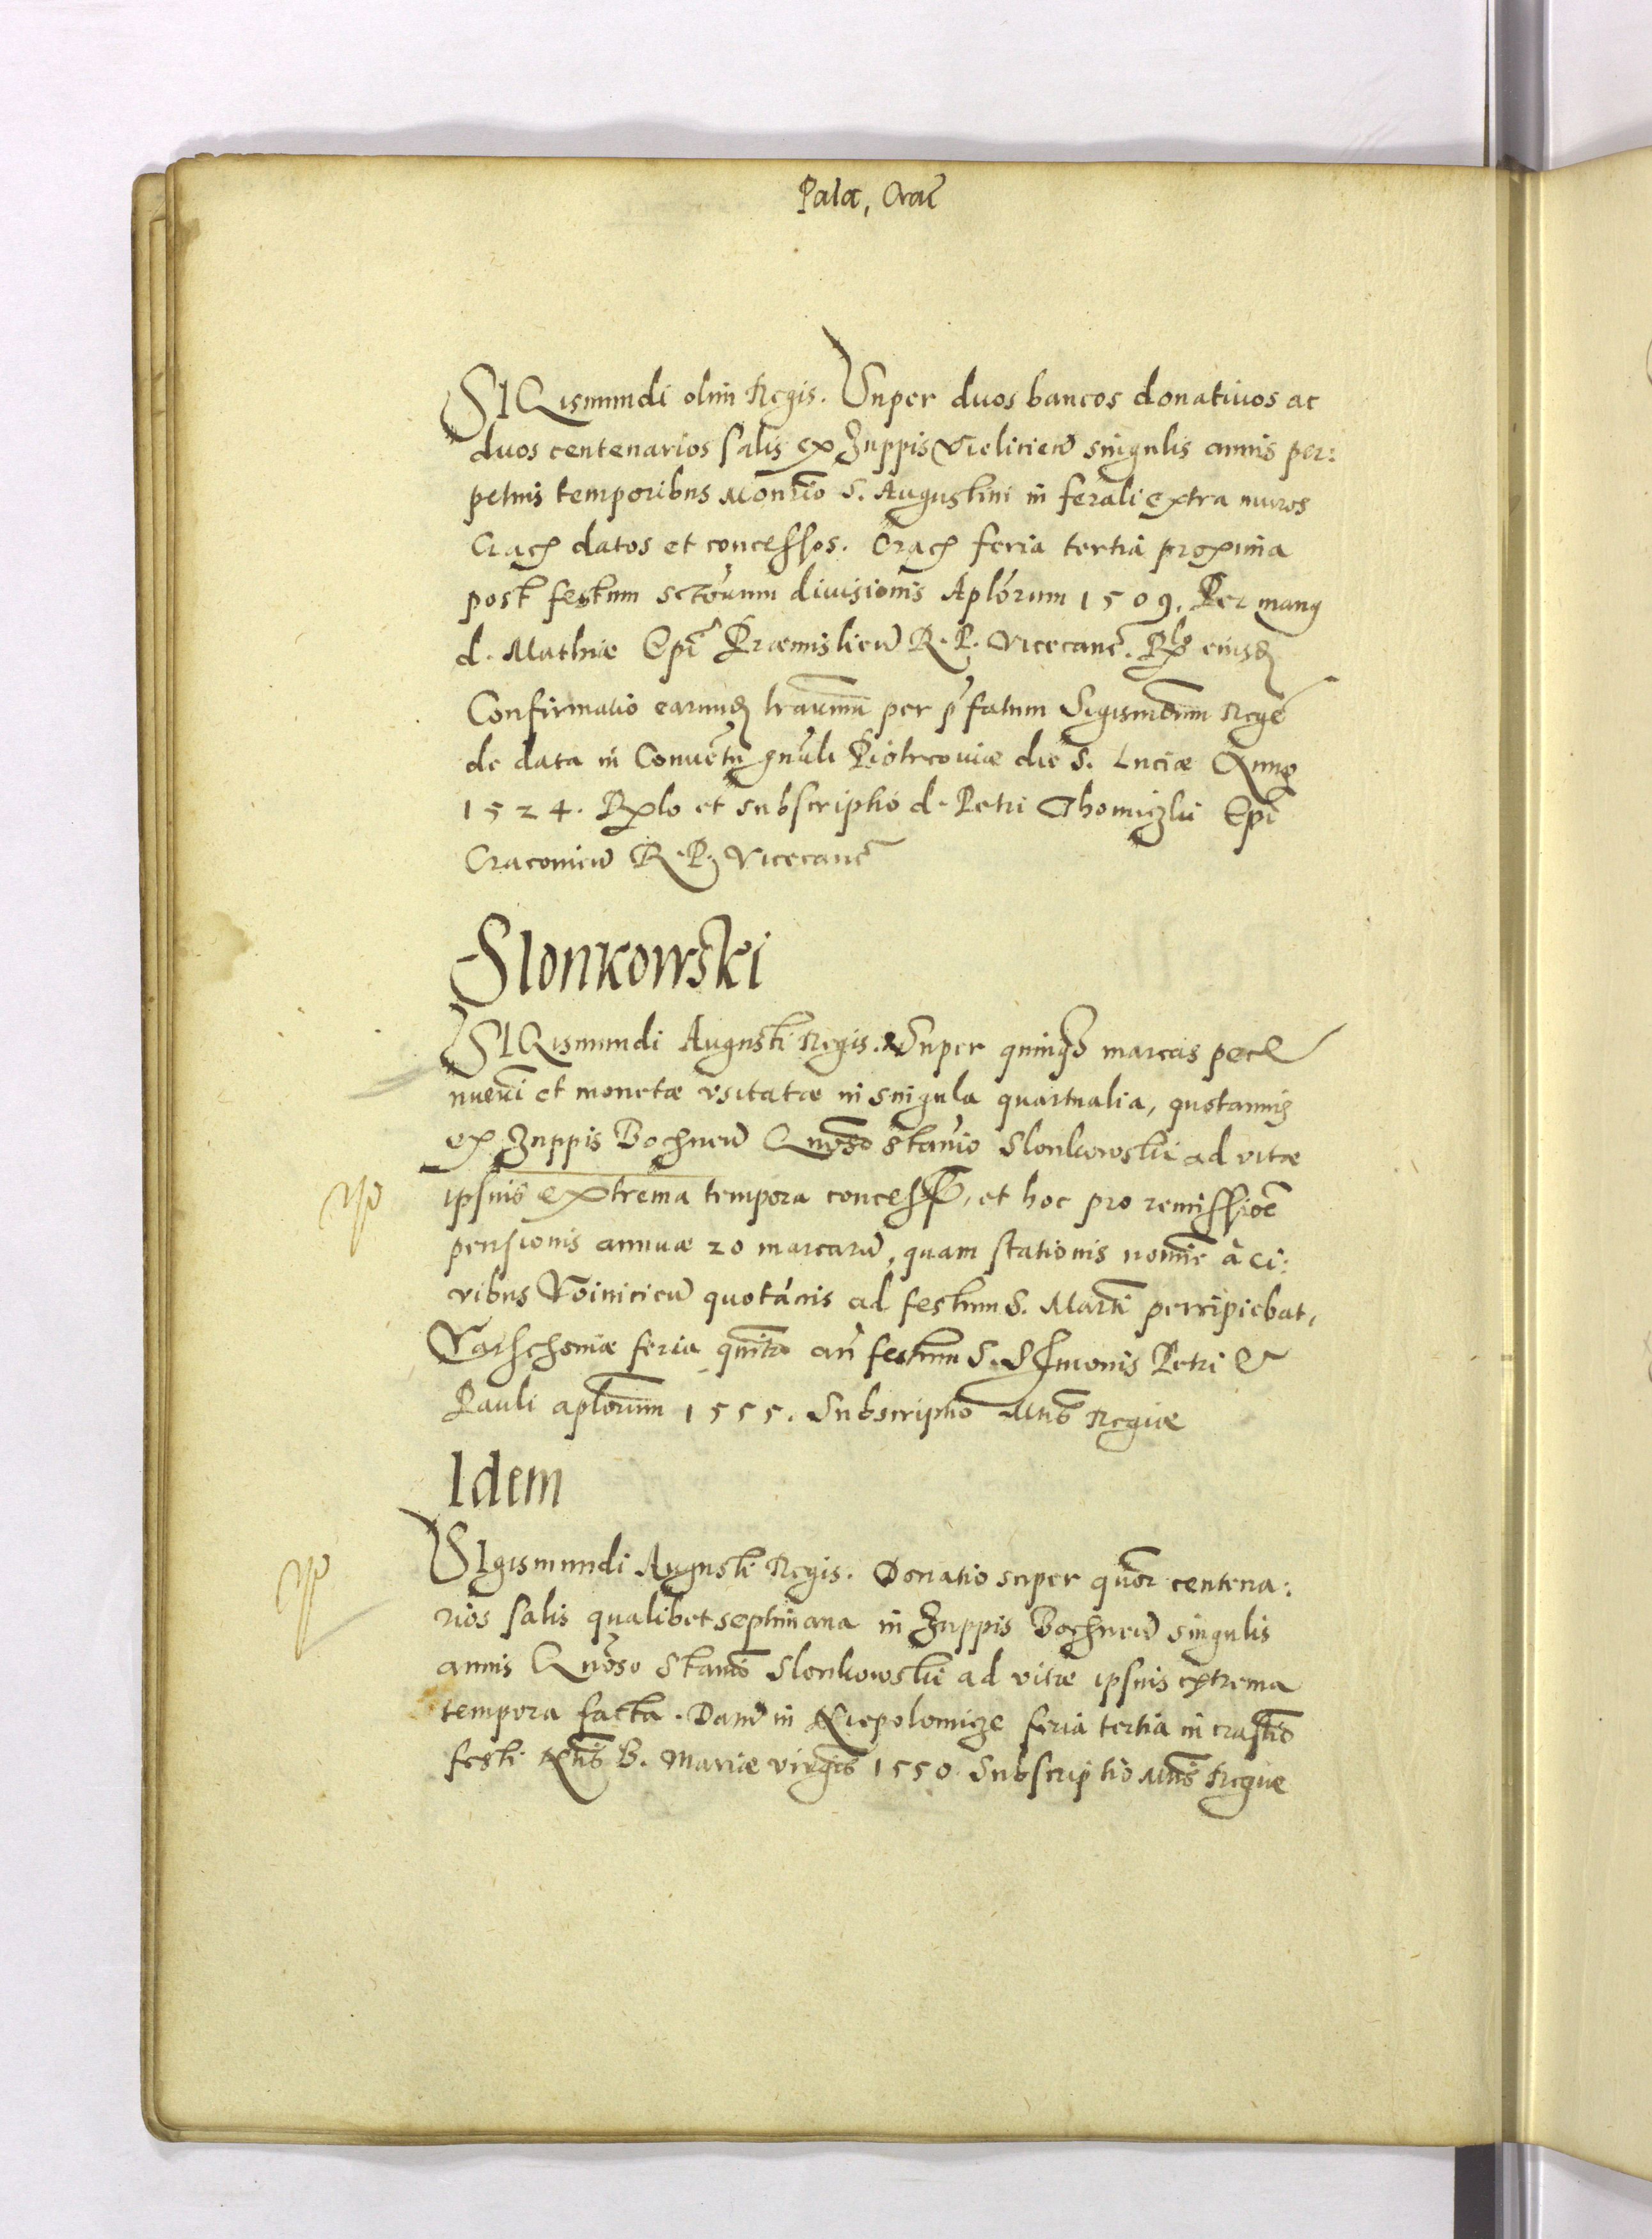 Palat, Crac̃
SIGismundi olim Regis. Super duos bancos donatiuos ac
duos centenarios salis ex Zuppis Vielicieñ singulis annis per:
petuis temporibus Monrio S. Augustini in ferali extra muros
Crac̃ datos et concessos. Crac̃ feria tertia proxima
post festum sctorum diuisionis Aplorum 1509. Per manꝰ
d. Mathiæ Epĩ Præmislieñ R. P. Vicecanc̃. eiusd̃
Confirmatio earund̃ lrarum per p̃fatum Sigismundum Regẽ
de data in Conuẽtu gnali Piotrcouiæ die S. Luciæ Anno
1524. et subscriptio d. Petri Thomiczki Epĩ
Cracouieñ R. P. Vicecanc̃
Slonkowski
SIGismundi Augusti Regis. Super quinqꝫ marcas pecu
nueri et monetæ vsitatæ in singula quartualia, quotannis
ex Zuppis Bochneñ Gnoso Stanio Slonkowski ad vitæ
ipsius extrema tempora concess, et hoc pro remissioẽ
pensionis annuæ 20 marcarũ, quam stationis nomiẽ à ci:
vibus Voinicieñ quotánis ad festum S. Marti percipiebat,
Varschouiæ feria quinta añ festum S. Petri &
Pauli aplorum 1555. Subscriptio Mtis Regiæ
Idem
SIgismundi Augusti Regis. Donatio super quor centena:
rios salis qualibet septimana in Zuppis Bochneñ singulis
annis Gnoso Stanio Slonkowski ad vitæ ipsius extrema
tempora facta. Datũ in Niepolomicze feria tertia in crastio
festi Ntis B. Mariæ virgis 1550 Subscriptio Mtis Regiæ